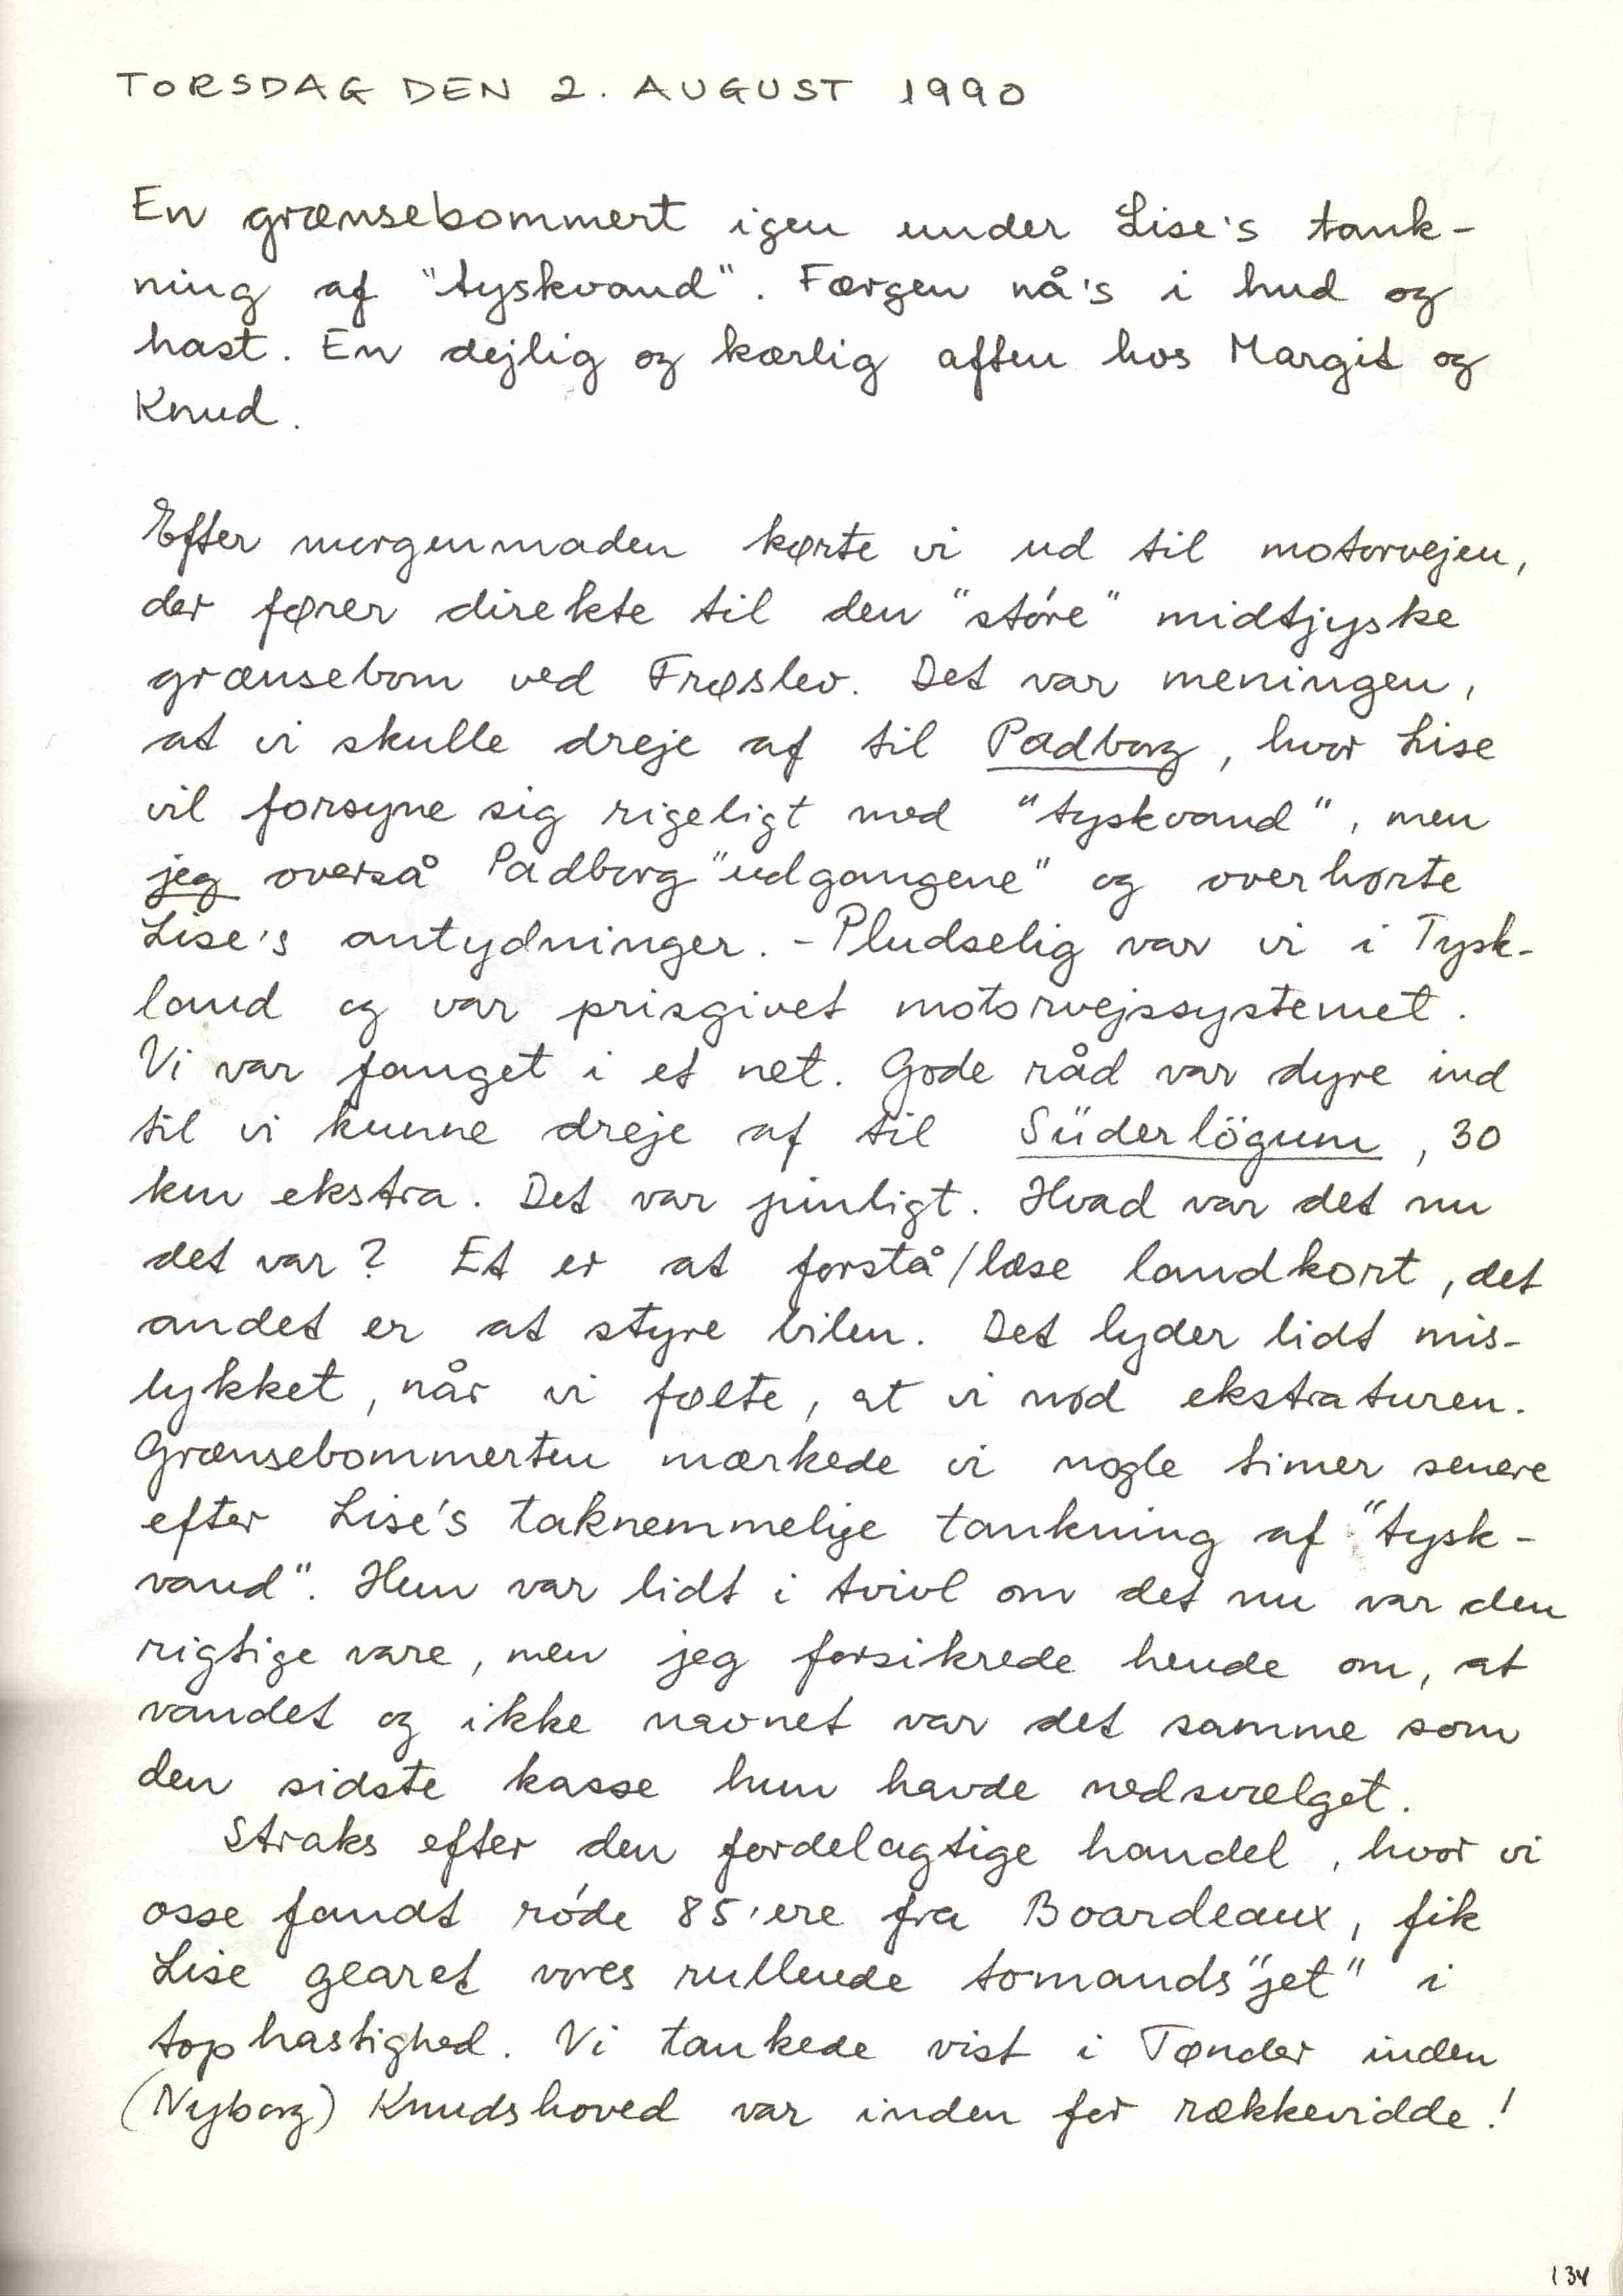 TORSDAG DEN 2. AUGUST 1990
En grænsebommert igen under Lise's tank-
ning af "tyskvand". Færgen nå's i hud og
hast. En dejlig og kærlig aften hos Margit og
Knud.
Efter morgenmaden kørte vi ud til motorvejen,
der fører direkte til den "stóre" midtjyske
grænsebom ved Frøslev. Det var meningen,
at vi skulle dreje af til Padborg, hvor Lise
vil forsyne sig rigeligt med "tyskvand", men
jeg overså Padborg "udgangene" og overhørte
Lise's antydninger. - Pludselig var vi i Tysk-
land og var prisgivet motorvejssystemet.
Vi var fanget i et net. Gode råd var dyre ind
til vi kunne dreje af til Süderlögum, 30
km ekstra. Det var pinligt. Hvad var det nu
det var? Et er at forstå/læse landkort, det
andet er at styre bilen. Det lyder lidt mis-
lykket, når vi følte, at vi nød ekstraturen.
Grænsebommerten mærkede vi nogle timer senere
efter Lise's taknemmelige tankning af "tysk-
vand". Hun var lidt i tvivl om det nu var den
rigtige vare, men jeg forsikrede hende om, at
vandet og ikke navnet var det samme som
den sidste kasse hun havde nedsvælget.
Straks efter den fordelagtige handel, hvor vi
osse fandt røde 85'ere fra Boardeaux, fik
Lise gearet vores rullende tomands "jet" i
tophastighed. Vi tankede vist i Tønder inden
(Nyborg) Knudshoved var inden for rækkevidde!
134